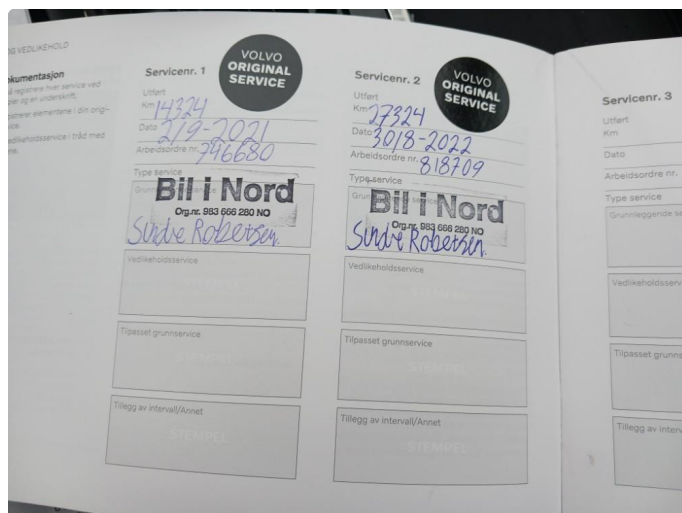 OG VEDLIKEHOLD
okumentasjon
å registrere hver service ved
pler og en underskrift.
gistrerer elementene i din orig-
vice.
vedlikeholdsservice i tråd med
ene.
Servicenr. 1
VOLVO
ORIGINAL
SERVICE
Utført
Km 14324
Dato 2/9-2021
Arbeidsordre nr. 746680
Type service
Bil i Nord
Org.nr. 983 666 280 NO
Sindre Robertsen.
Vedlikeholdsservice
STEMPEL
Tilpasset grunnservice
STEMPEL
Tillegg av intervall/Annet
STEMPEL
Servicenr. 2
VOLVO
ORIGINAL
SERVICE
Utført
Km 27324
Dato 30/8-2022
Arbeidsordre nr. 818709
Type service
Bil i Nord
Org.nr. 983 666 280 NO
Sindre Robertsen.
Vedlikeholdsservice
STEMPEL
Tilpasset grunnservice
STEMPEL
Tillegg av intervall/Annet
STEMPEL
Servicenr. 3
Utført
Km
Dato
Arbeidsordre nr.
Type service
Grunnleggende se
Vedlikeholdsserv
Tilpasset grunns
Tillegg av interv